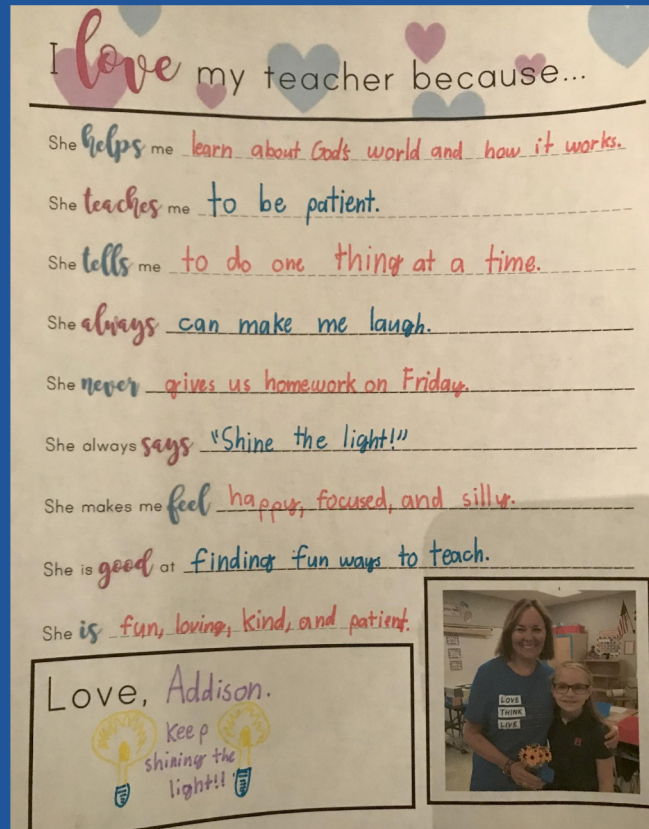 I love my teacher because...
She helps me learn about God's world and how it works.
She teaches me to be patient.
She tells me to do one thing at a time.
She always can make me laugh.
She never gives us homework on Friday.
She always says "Shine the light!"
She makes me feel happy, focused, and silly.
She is good at finding fun ways to teach.
She is fun, loving, kind, and patient.
Love, Addison.
Keep
shining the
light!!
LOVE
THINK
LIVE